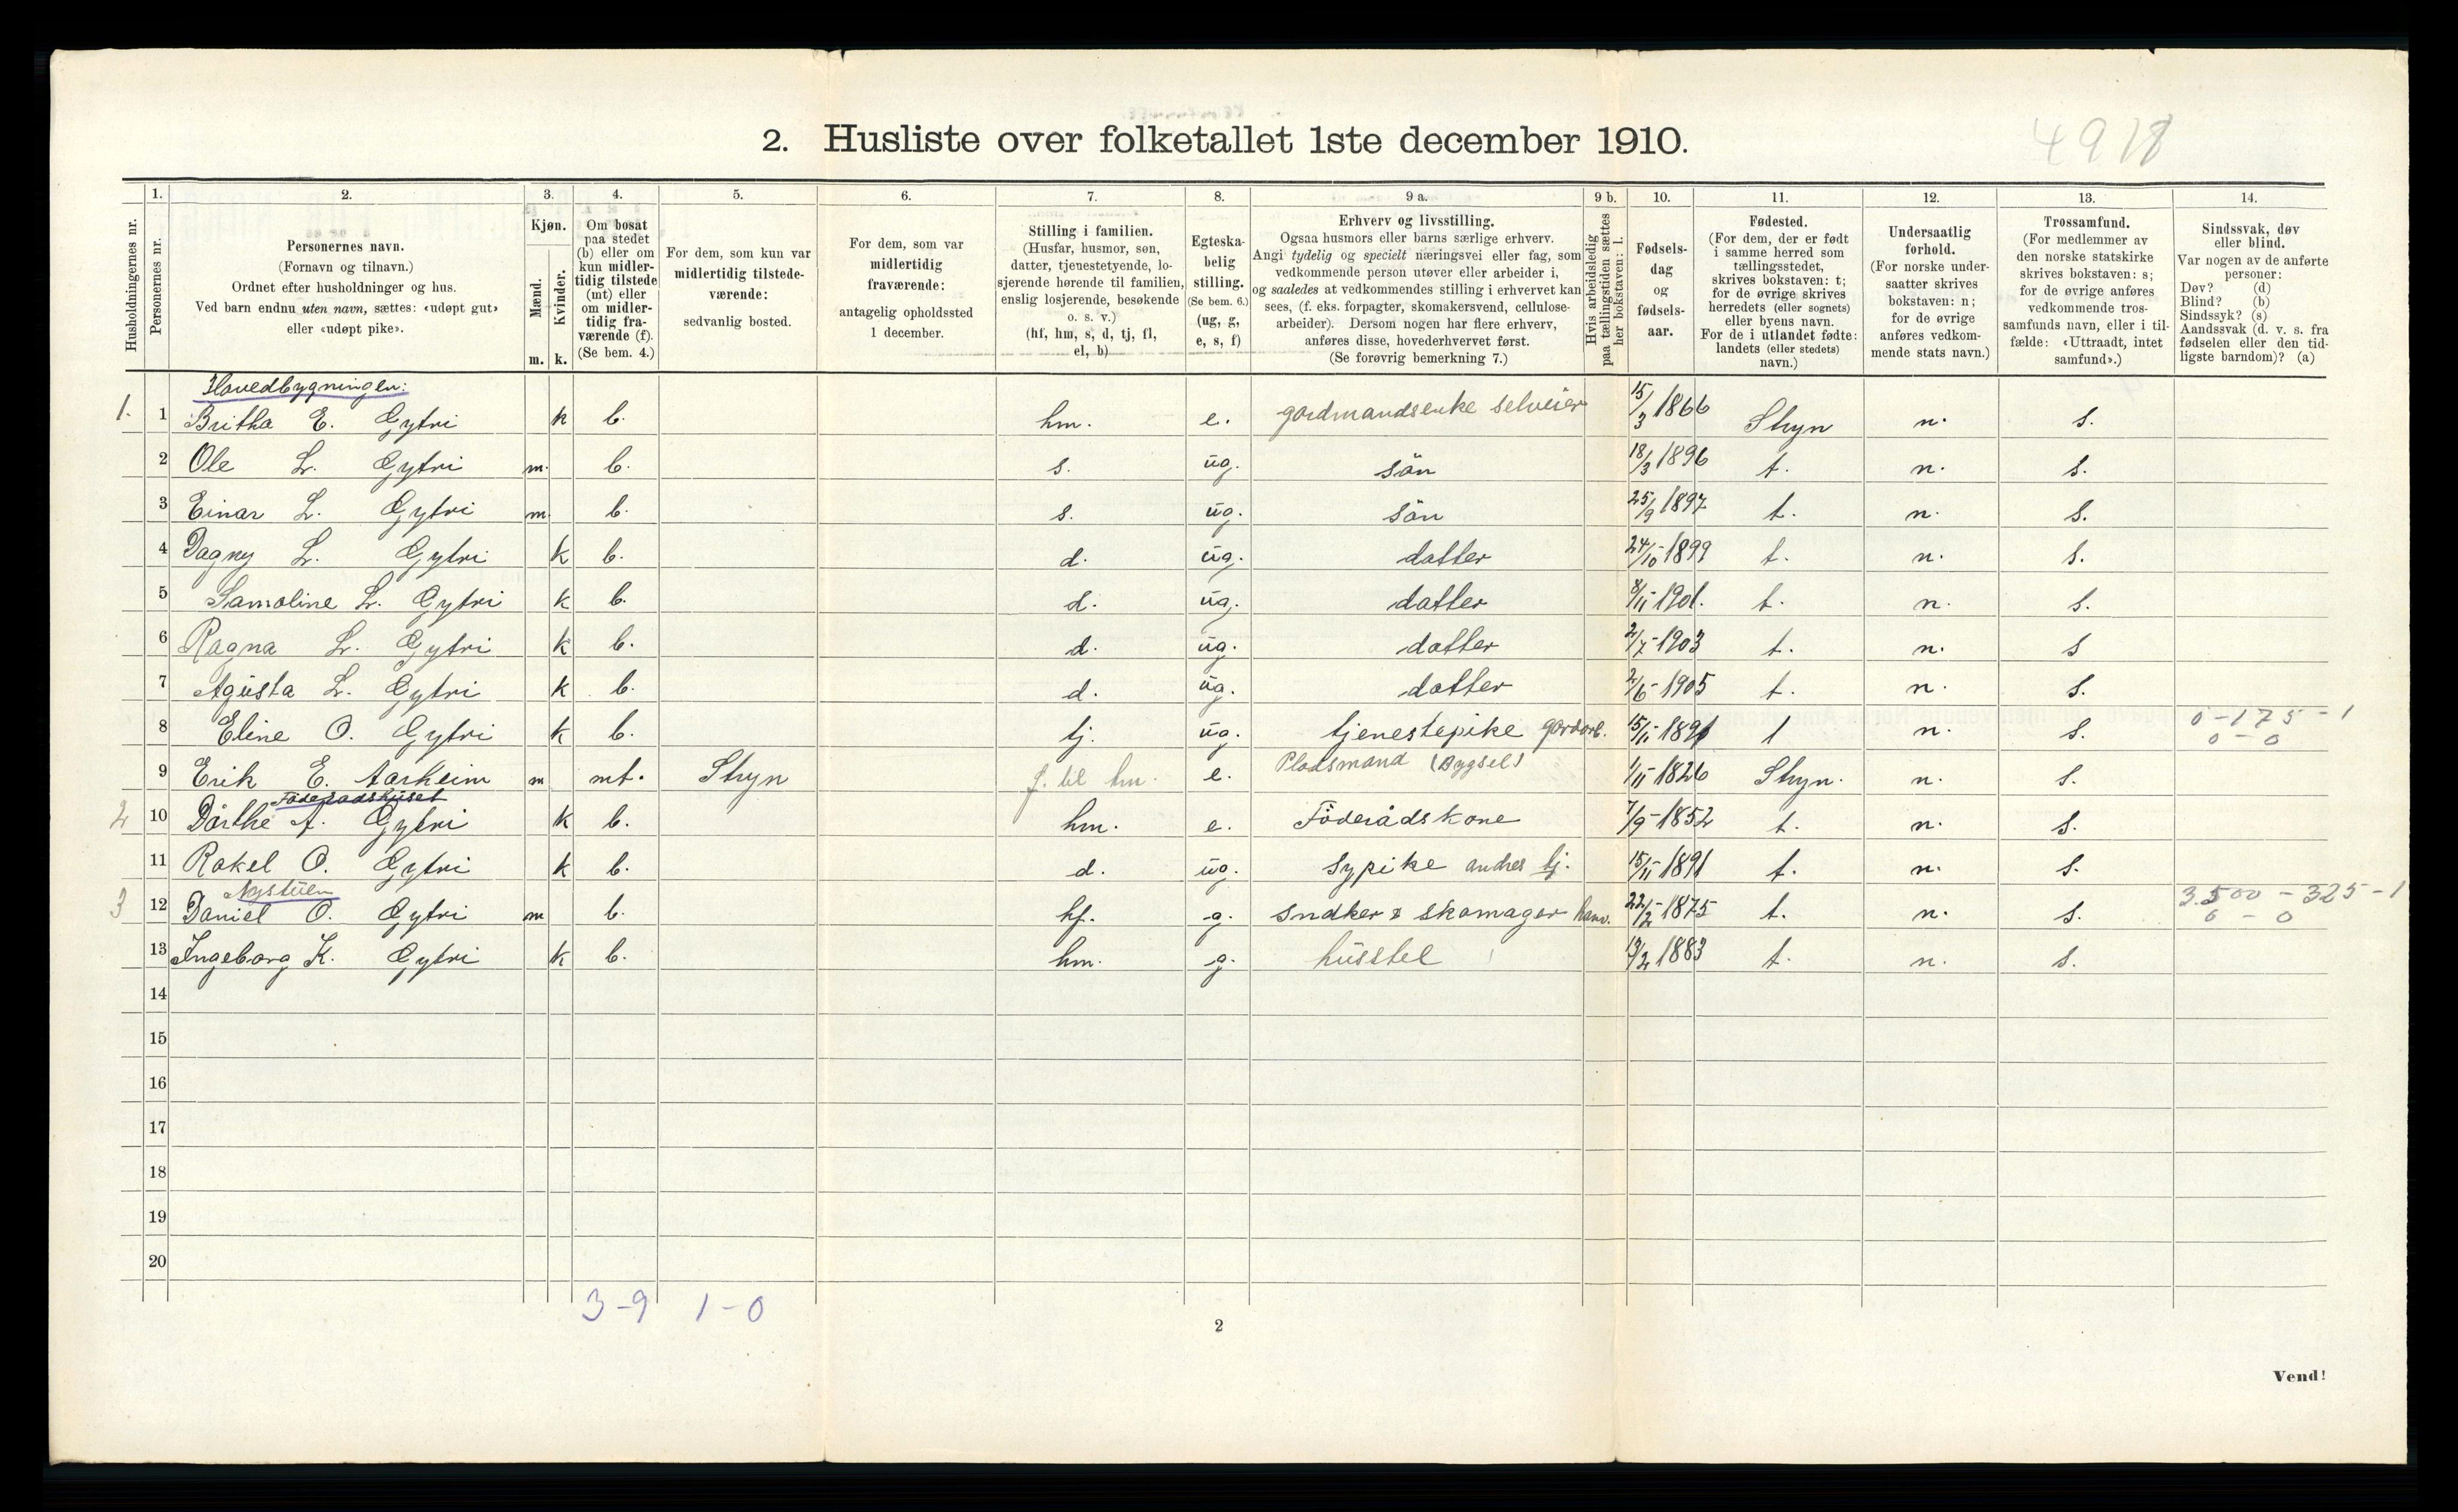 2. Husliste over folketallet 1ste december 1910.
4918
Husholdningernes nr.
1.
Personernes nr.
2.
Personernes navn.
(Fornavn og tilnavn.)
Ordnet efter husholdninger og hus.
Ved barn endnu uten navn, sættes: «udøpt gut»
eller «udøpt pike».
3.
Kjøn.
Mænd.
m.
Kvinder.
k.
4.
Om bosat
paa stedet
(b) eller om
kun midler-
tidig tilstede
(mt) eller
om midler-
tidig fra-
værende (f).
(Se bem. 4.)
5.
For dem, som kun var
midlertidig tilstede-
værende:
sedvanlig bosted.
6.
For dem, som var
midlertidig
fraværende:
antagelig opholdssted
1 december.
7.
Stilling i familien.
(Husfar, husmor, søn,
datter, tjenestetyende, lo-
sjerende hørende til familien,
enslig losjerende, besøkende
o. s. v.)
(hf, hm, s, d, tj, fl,
el, b)
8.
Egteska-
belig
stilling.
(Se bem. 6.)
(ug, g,
e, s, f)
9 a.
Erhverv og livsstilling.
Ogsaa husmors eller barns særlige erhverv.
Angi tydelig og specielt næringsvei eller fag, som
vedkommende person utøver eller arbeider i,
og saaledes at vedkommendes stilling i erhvervet kan
sees, (f. eks. forpagter, skomakersvend, cellulose-
arbeider). Dersom nogen har flere erhverv,
anføres disse, hovederhvervet først.
(Se forøvrig bemerkning 7.)
9 b.
Hvis arbeidsledig
paa tællingstiden sættes
her bokstaven: l.
10.
Fødsels-
dag
og
fødsels-
aar.
11.
Fødested.
(For dem, der er født
i samme herred som
tællingsstedet,
skrives bokstaven: t;
for de øvrige skrives
herredets (eller sognets)
eller byens navn.
For de i utlandet fødte:
landets (eller stedets)
navn.)
12.
Undersaatlig
forhold.
(For norske under-
saatter skrives
bokstaven: n;
for de øvrige
anføres vedkom-
mende stats navn.)
13.
Trossamfund.
(For medlemmer av
den norske statskirke
skrives bokstaven: s;
for de øvrige anføres
vedkommende tros-
samfunds navn, eller i til-
fælde: «Uttraadt, intet
samfund».)
14.
Sindssvak, døv
eller blind.
Var nogen av de anførte
personer:
Døv? (d)
Blind? (b)
Sindssyk? (s)
Aandssvak (d. v. s. fra
fødselen eller den tid-
ligste barndom)? (a)
Hovedbygningen:
1. 1 Britha E. Gytri k b. hm. e. gordmandsenke selveier 15/3 1866 Stryn n. s.
2 Ole L. Gytri m. b. s. ug. sön 18/3 1896 t. n. s.
3 Einar L. Gytri m. b. s. ug. sön 25/9 1897 t. n. s.
4 Dagny L. Gytri k b. d. ug. datter 24/10-1899 t. n. s.
5 Samoline L. Gytri k b. d. ug. datter 8/11 1901. t. n. s.
6 Ragna L. Gytri k b. d. ug. datter 2/7-1903 t. n. s
7 Agusta L. Gytri k b. d. ug. datter 2/6-1905 t. n. s.
8 Eline O. Gytri k b. tj. ug. tjenestepike gordarb. 15/11-1891 t n. s. 0-175-1
0-0
9 Erik E. Aarheim m mt. Stryn f. til hm. e. Pladsmand (Bygsel) 1/11 1826 Stryn. n. s.
Föderådshuset
2 10 Dorthe A. Gytri k b. hm. e. Föderådskone 7/9-1852 t. n. s.
11 Rakel O. Gytri k b. d. ug. sypike andres tj. 15/11 1891 t. n. s.
Nystuen
3 12 Daniel O. Gytri m b. hf. g. sndker & skomager hanv. 22/2-1875 t. n. s. 3.500-325-1
0-0
13 Ingeborg K. Gytri k b. hm. g. husstel 13/2 1883 t. n. s.
14
15
16
17
18
19
20
3-9 1-0
2
Vend!